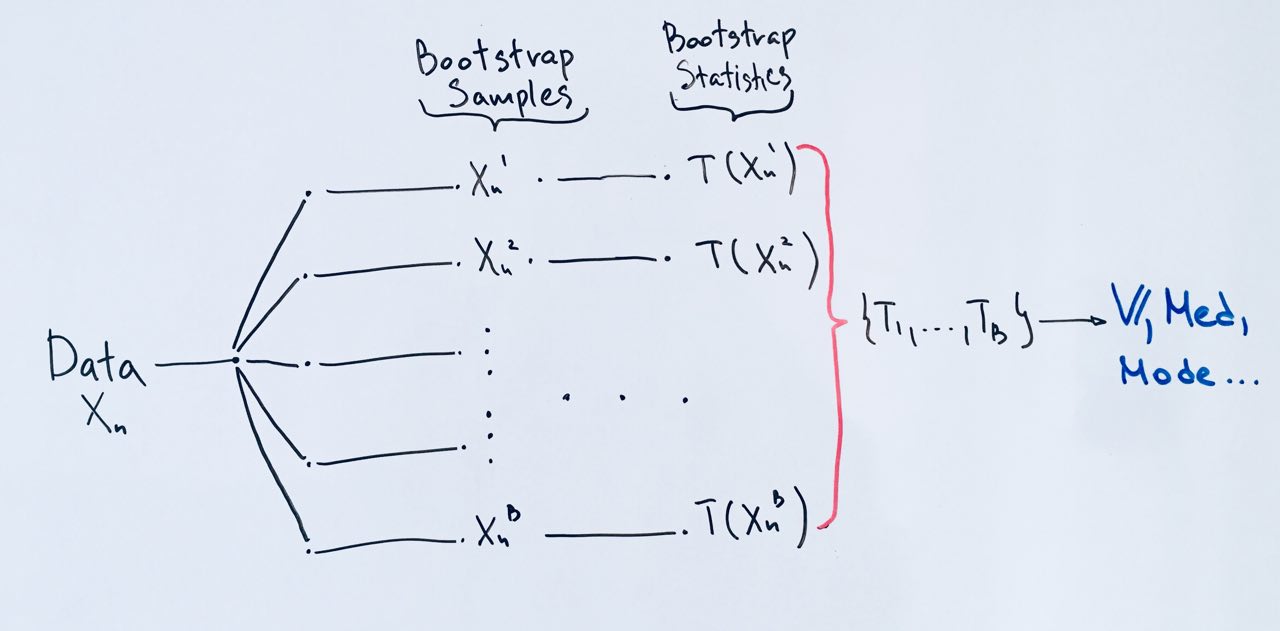 Bootstrap
Samples
Bootstrap
Statistics
Xₙ¹ T(Xₙ¹)
Xₙ² T(Xₙ²)
Data
Xₙ
{T₁,...,T_B} → V, Med,
Mode...
Xₙᴮ T(Xₙᴮ)